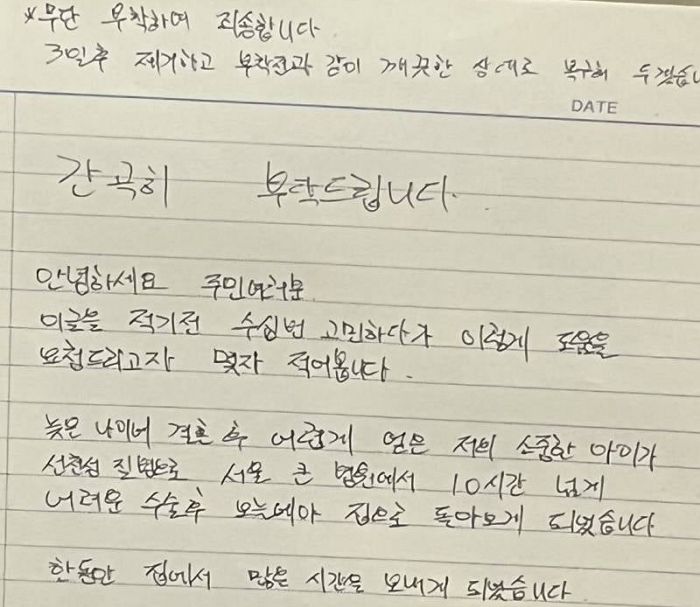 *무단 부착하여 죄송합니다
3일후 제거하고 부착전과 같이 깨끗한 상태로 복구해 두겠습니
DATE
간곡히 부탁드립니다.
안녕하세요 주민여러분
이글을 적기전 수십번 고민하다가 이렇게 도움을
요청드리고자 몇자 적어봅니다.
늦은 나이에 결혼 후 어렵게 얻은 저의 소중한 아이가
선천성 질병으로 서울 큰 병원에서 10시간 넘게
어려운 수술후 오늘에야 집으로 돌아오게 되었습니다
한동안 집에서 많은 시간을 보내게 되었습니다